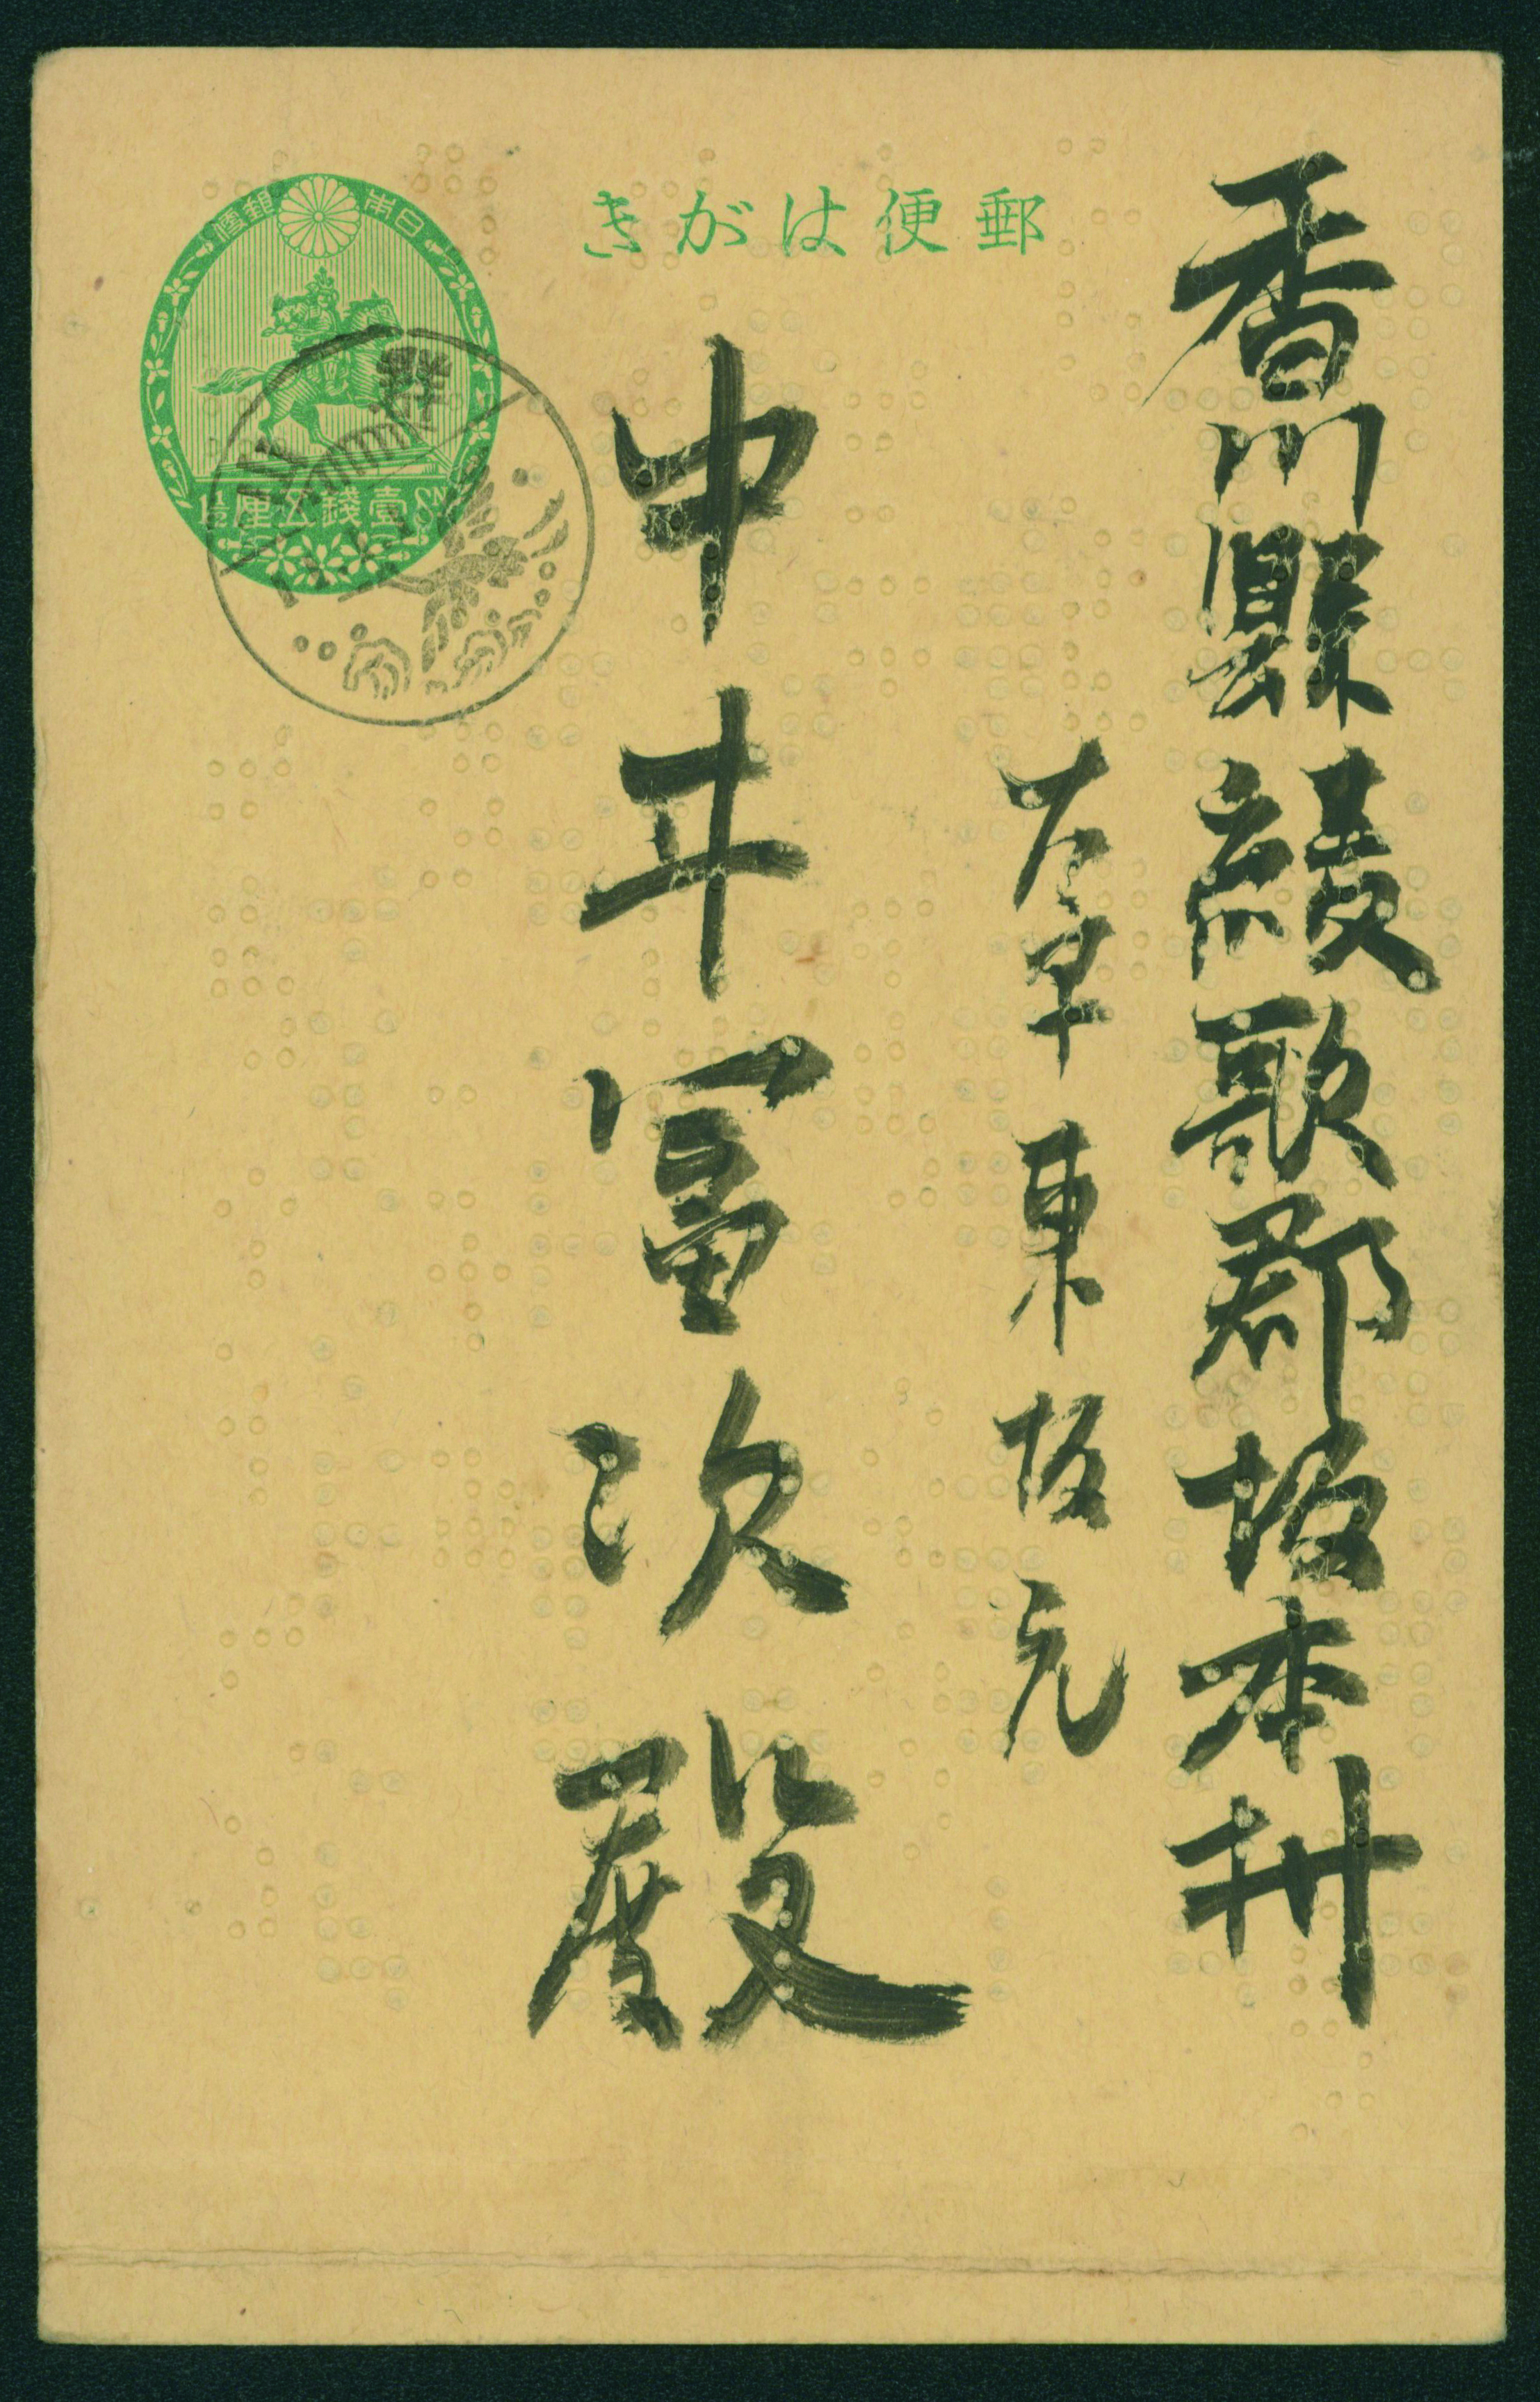 郵便はがき
日本郵便
壹錢五厘
香川縣綾歌郡坂本村
大字東坂元
中井冨次殿